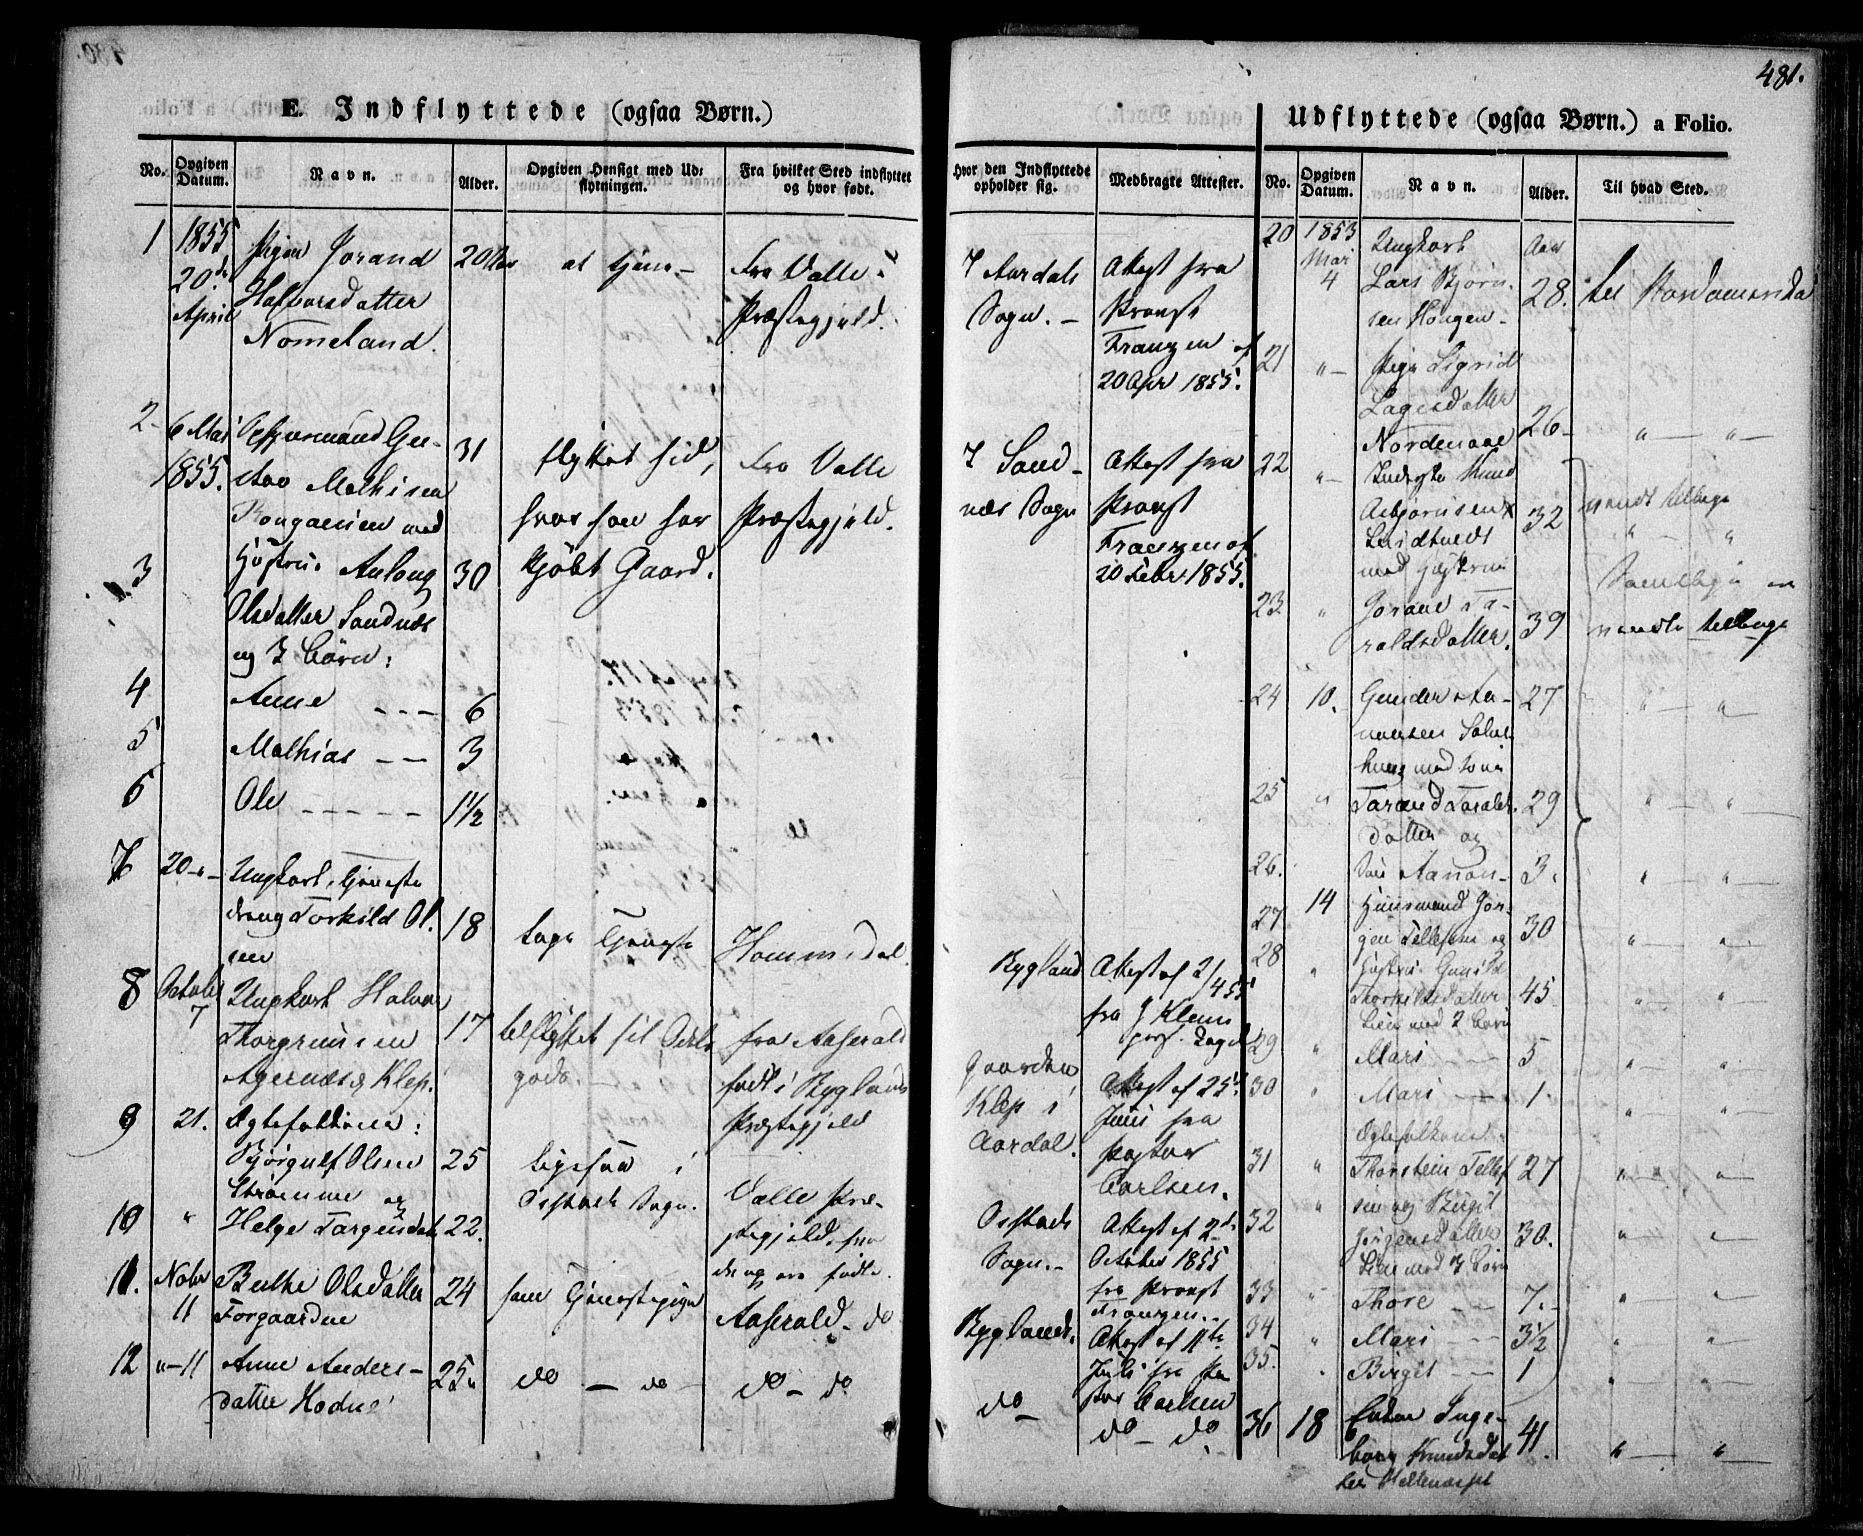 481.
E. Indflyttede (ogsaa Børn.)
No. Opgiven Datum. Navn. Alder. Opgiven Hensigt med Udflytningen. Fra hvilket Sted indflyttet og hvor født.
Hvor den Indflyttede opholder sig. Medbragte Attester.
1 1855 20de April Pigen Jorand 20 Aar at tjene Fra Valle
Halvorsdatter Præstegjeld.
Nomeland.
I Aardals Sogn. Attest fra Provst Franzen af 20 Apr 1855.
2 6 Mai 1855. Gu-
stav Mathisen 31 flyttet hid, Fra Valle
med hvor han har Præstegjeld.
3 Hustru Aslaug 30 kjøbt Gaard.
Olsdatter Sandnæs
og 3 Børn:
I Sandnæs Sogn Attest fra Provst Franzen af 20 Febr. 1855.
4 Anne - - - 6
5 Mathias - - 3
6 Ole - - - - 1½
7 20 Ungkarl, Tjeneste
dreng Torkild Ol- 18 tage Tjeneste Hommedal.
sen
Bygland Attest af 2/4 55
fra J Klem
8 October 7 Ungkarl Halvor
Thorgrimsen 17 fra Aaserald
Agernæs Klep. født i Byglands
Præstegjeld
Gaarden Klep i Aardal. Attest af 25de Juni fra Pastor Carlsen.
9 21. Ægtefolkene:
Bjørgulf Olsen 25 ligesaa i
Strømme og Sogn. Valle Præ-
10 " Helge Targeirsdat. 22. stegjeld, fra
Sogn. Attest af 2de October 1855 fra Provst Franzen.
11. Novbr 11 Berthe Olsdatter 24 som Tjenestepige Aaserald - do
Forgaarden
Byglands. Attest af 11te Juli fra Pastor Carlsen
12 " - 11 Anne Anders- 25 do - do do - do
datter Hodne
do do - do
Udflyttede (ogsaa Børn.) a Folio.
No. Opgiven Datum. Navn. Alder. Til hvad Sted.
20 1853 Mai 4 Ungkarl Aar
Lars Bjørn- 28. til Nordamerika
sen Haugen
21 " Pige Sigrid
26 " "
22 " Knud
Asbjørnsen 32 vendt tilbage
med Hustru
23. " Ta-
raldsdatter. 39 vendte tilbage
24 10. Gunder Aa- 27 " "
nonsen
med Kone
25 " Tarald- 29 " "
datter og
26. Søn Aanon 3. " "
27 14 Huusmand Jør-
gen Tellefsen og 30 " "
28 " Hustru Gunild
Thorkildsdatter 45 " "
Lien med 2 Børn
29 " Mari 5 " "
30 " Mari 1. " "
Ægtefolkene
31 " Thorstein Tellef- 27 " "
sen og Birgit
32 " Jørgensdatter 30. " "
Lien med 3 Børn
33 " Thore 7. " "
34. " Mari 3½ " "
35. " Birgit 1
36 18 Enke Inge-
borg Knudsdat- 41. " "
ter